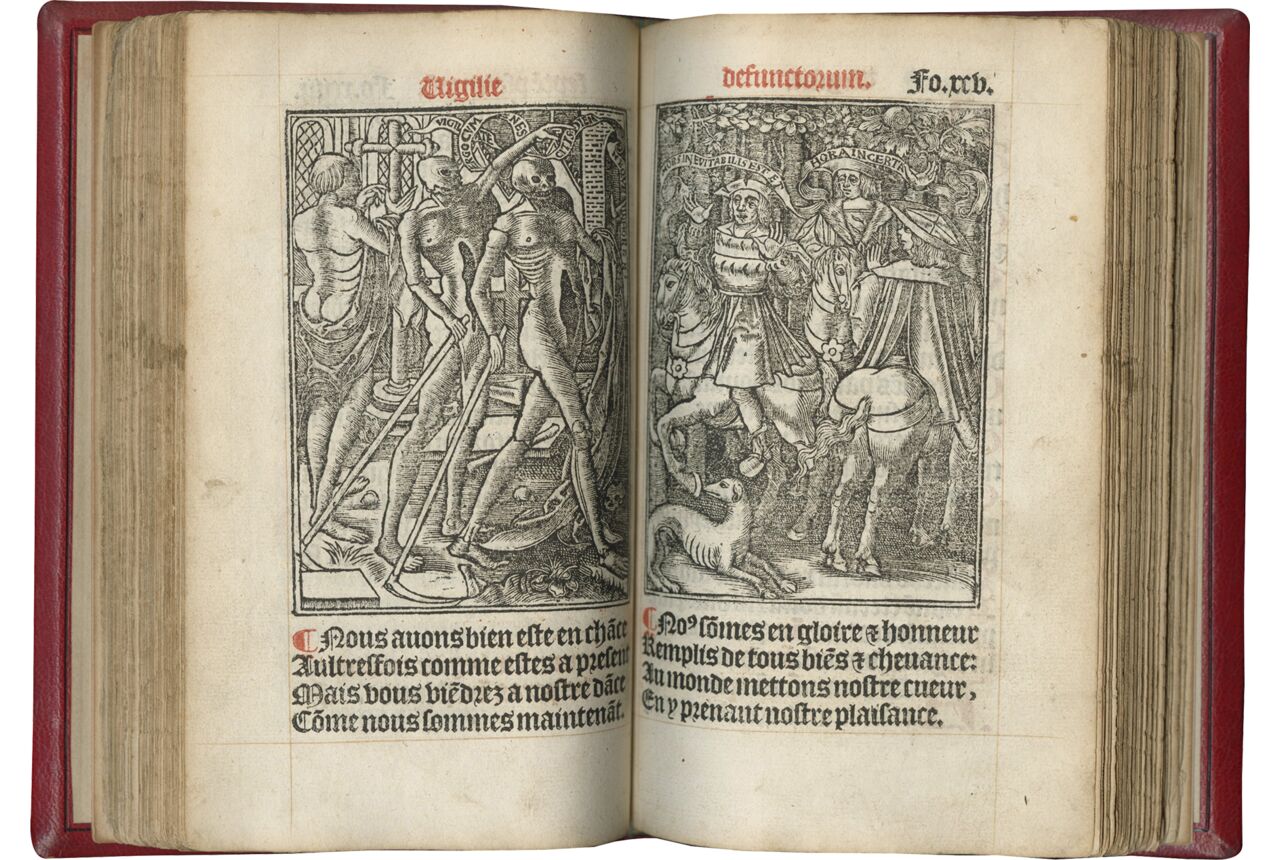 Vigilie
¶ Nous auons bien este en chãce
Aultresfois comme estes a present
Mais vous viẽdrez a nostre dãce
Cõme nous sommes maintenãt.
defunctorum. Fo.xxv.
INEVITABILIS EST ET
HORA INCERTA
¶ Noꝰ sõmes en gloire ⁊ honneur
Remplis de tous biẽs ⁊ cheuance:
Au monde mettons nostre cueur,
En y prenant nostre plaisance.